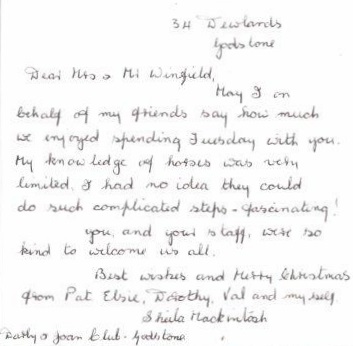 34 Dewlands
Godstone
Dear Mrs & Mr Winfield,
May I on
behalf of my friends say how much
we enjoyed spending Tuesday with you.
My knowledge of horses was very
limited. I had no idea they could
do such complicated steps - fascinating!
you, and your staff, were so
kind to welcome us all.
Best wishes and Merry Christmas
from Pat Elsie, Dorothy, Val and my self.
Sheila Mackintosh
& Joan Club - Godstone